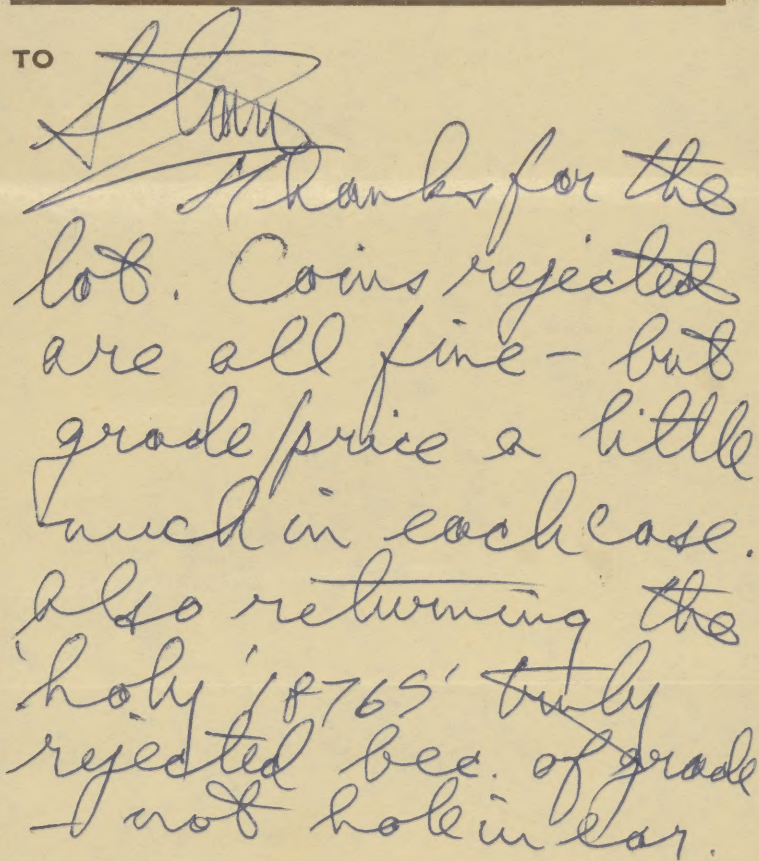 TO Stan
Thanks for the
lot. Coins rejected
are all fine - but
grade/price a little
much in each case.
Also returning the
'holy' 1876S' truly
rejected bec. of grade
- not hole in ear.